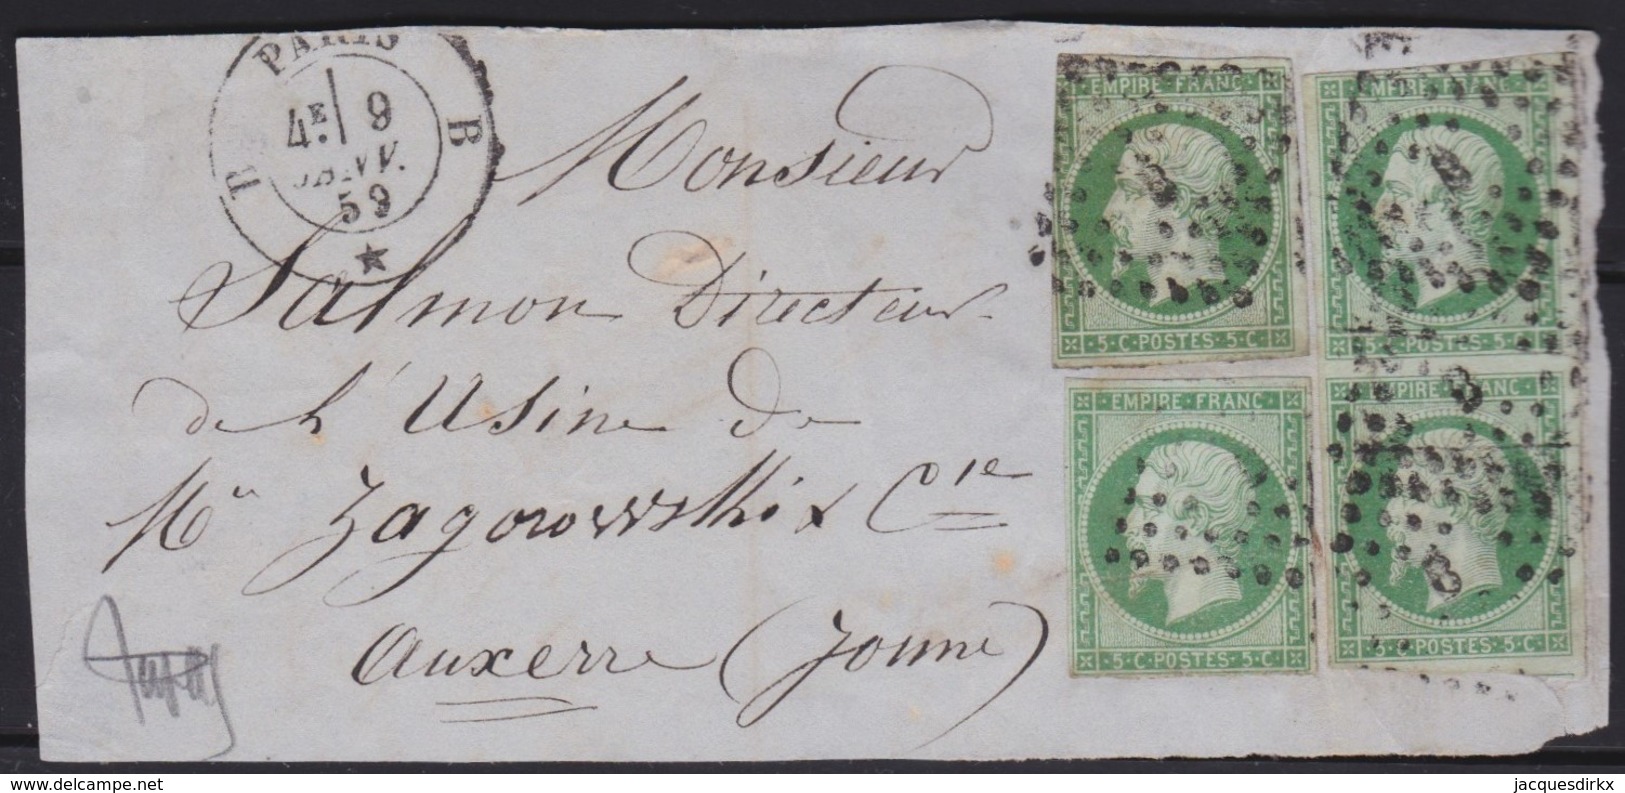 PARIS
4E 9
JANV.
59
B
B
Monsieur
Salmon Directeur
de l'Usine de
Mr Zagorowski & Cie
Auxerre (Yonne)
EMPIRE FRANC
5·C·POSTES·5·C
EMPIRE FRANC
5·C·POSTES·5·C
EMPIRE·FRANC
5·C·POSTES·5·C
EMPIRE FRANC
5·C·POSTES·5·C
jacquesdirkx